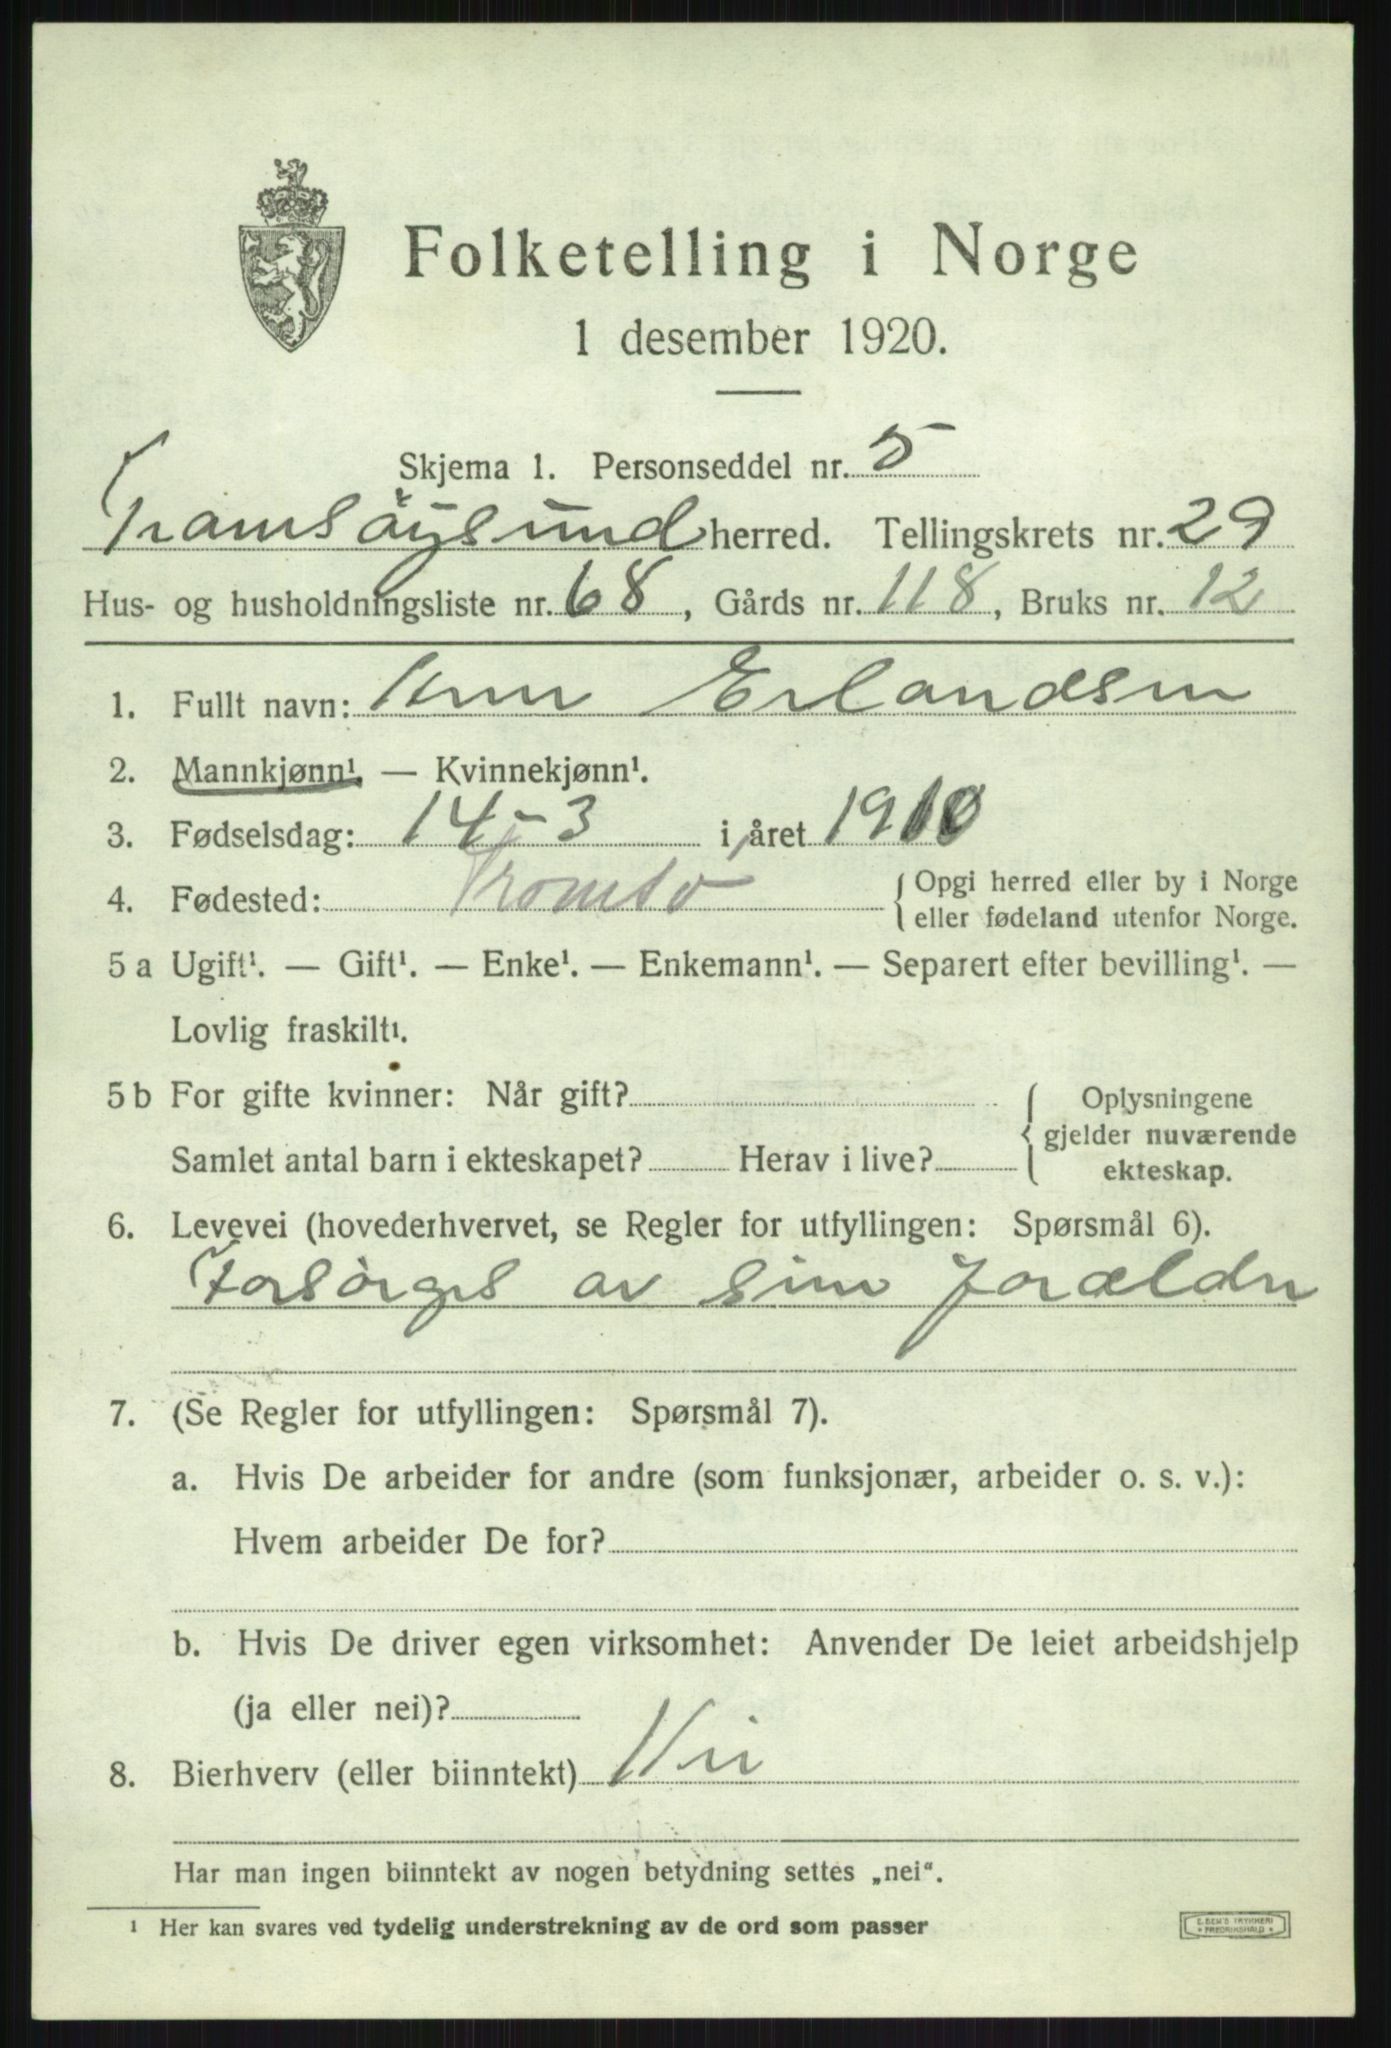 Folketelling i Norge
1 desember 1920.
Skjema 1. Personseddel nr. 5
Tromsöysund herred. Tellingskrets nr. 29
Hus- og husholdningsliste nr. 68, Gårds nr. 118, Bruks nr. 12
1. Fullt navn: Erlandsen
2. Mannkjønn¹. — Kvinnekjønn¹.
3. Fødselsdag: 14-3 i året 1910
4. Fødested: Tromsø { Opgi herred eller by i Norge
eller fødeland utenfor Norge.
5 a Ugift¹. — Gift¹. — Enke¹. — Enkemann¹. — Separert efter bevilling¹. —
Lovlig fraskilt¹.
5 b For gifte kvinner: Når gift?
Samlet antal barn i ekteskapet? Herav i live?
{ Oplysningene
gjelder nuværende
ekteskap.
6. Levevei (hovederhvervet, se Regler for utfyllingen: Spørsmål 6).
Forsørges av sine forældre
7. (Se Regler for utfyllingen: Spørsmål 7).
a. Hvis De arbeider for andre (som funksjonær, arbeider o. s. v.):
Hvem arbeider De for?
b. Hvis De driver egen virksomhet: Anvender De leiet arbeidshjelp
(ja eller nei)?
8. Bierhverv (eller biinntekt) Nei
Har man ingen biinntekt av nogen betydning settes „nei“.
¹ Her kan svares ved tydelig understrekning av de ord som passer
E. SEM'S TRYKKERI
FREDRIKSHALD